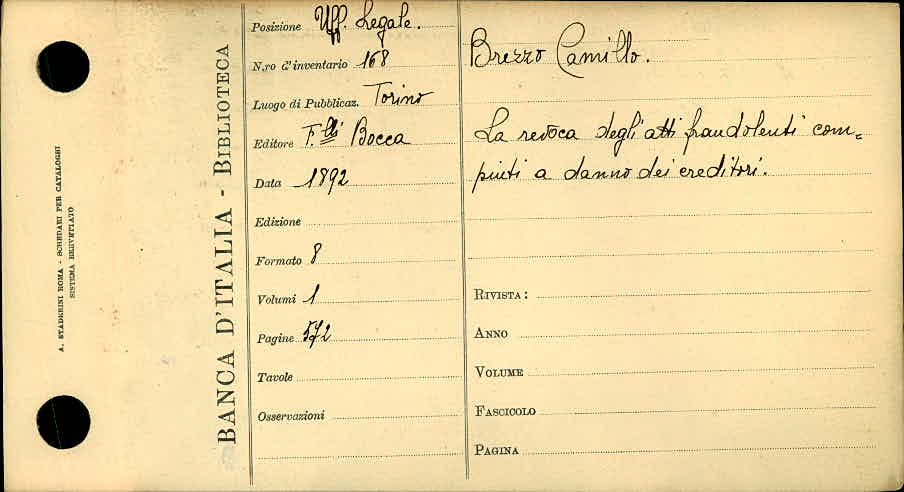 A. STADERINI ROMA - SCHEDARI PER CATALOGHI
SISTEMA BREVETTATO
BANCA D'ITALIA - BIBLIOTECA
Posizione Uff. Legale.
N.ro d'inventario 168
Luogo di Pubblicaz. Torino
Editore F.lli Bocca
Data 1892
Edizione
Formato 8
Volumi 1
Pagine 572
Tavole
Osservazioni
Brezzo Camillo.
La revoca degli atti fraudolenti com=
piuti a danno dei creditori.
RIVISTA:
ANNO
VOLUME
FASCICOLO
PAGINA